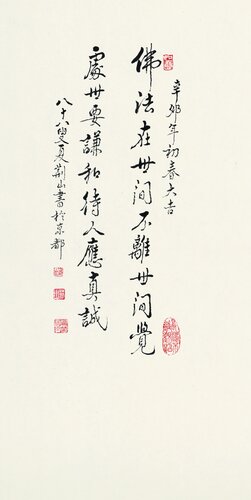 辛卯年初春大吉
佛法在世间不離世间覺
處世要謙和待人應真誠
八十八叟夏荊山書於京都